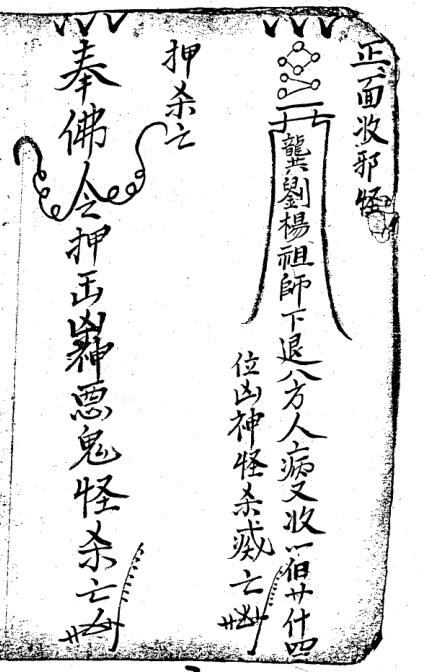 正面收邪怪
龔劉楊祖師下退八方人病又收一佰廿什四
位凶神怪杀滅亡
押杀亡
奉佛令押出凶神惡鬼怪杀亡